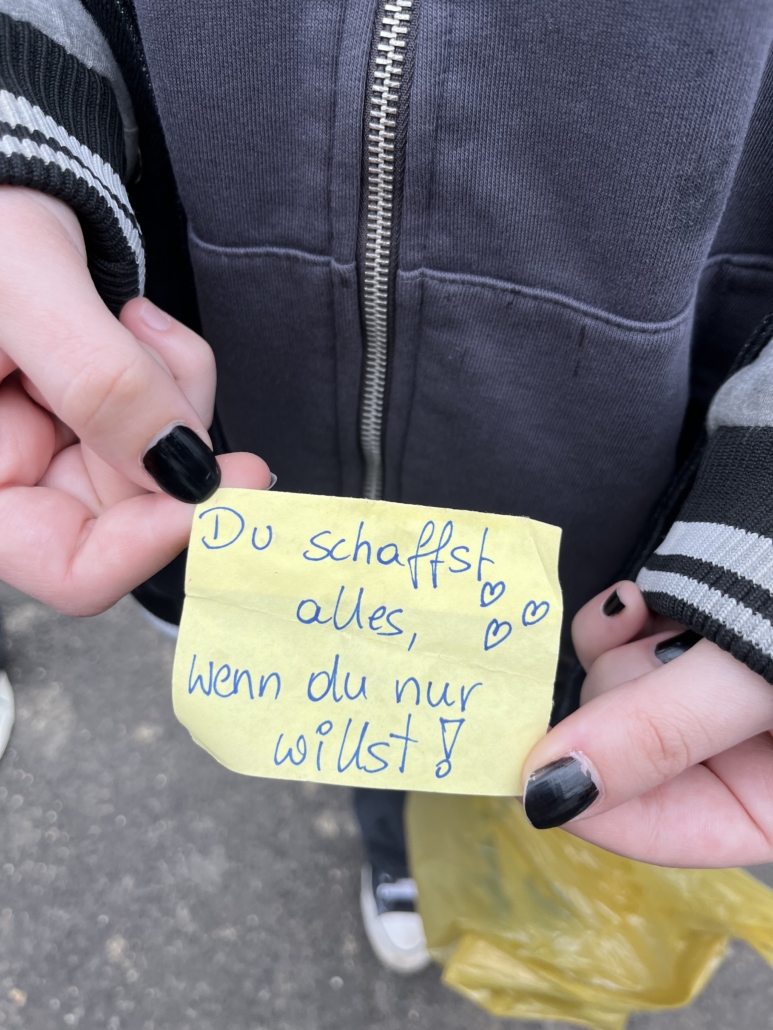 Du schaffst
alles,
wenn du nur
willst!